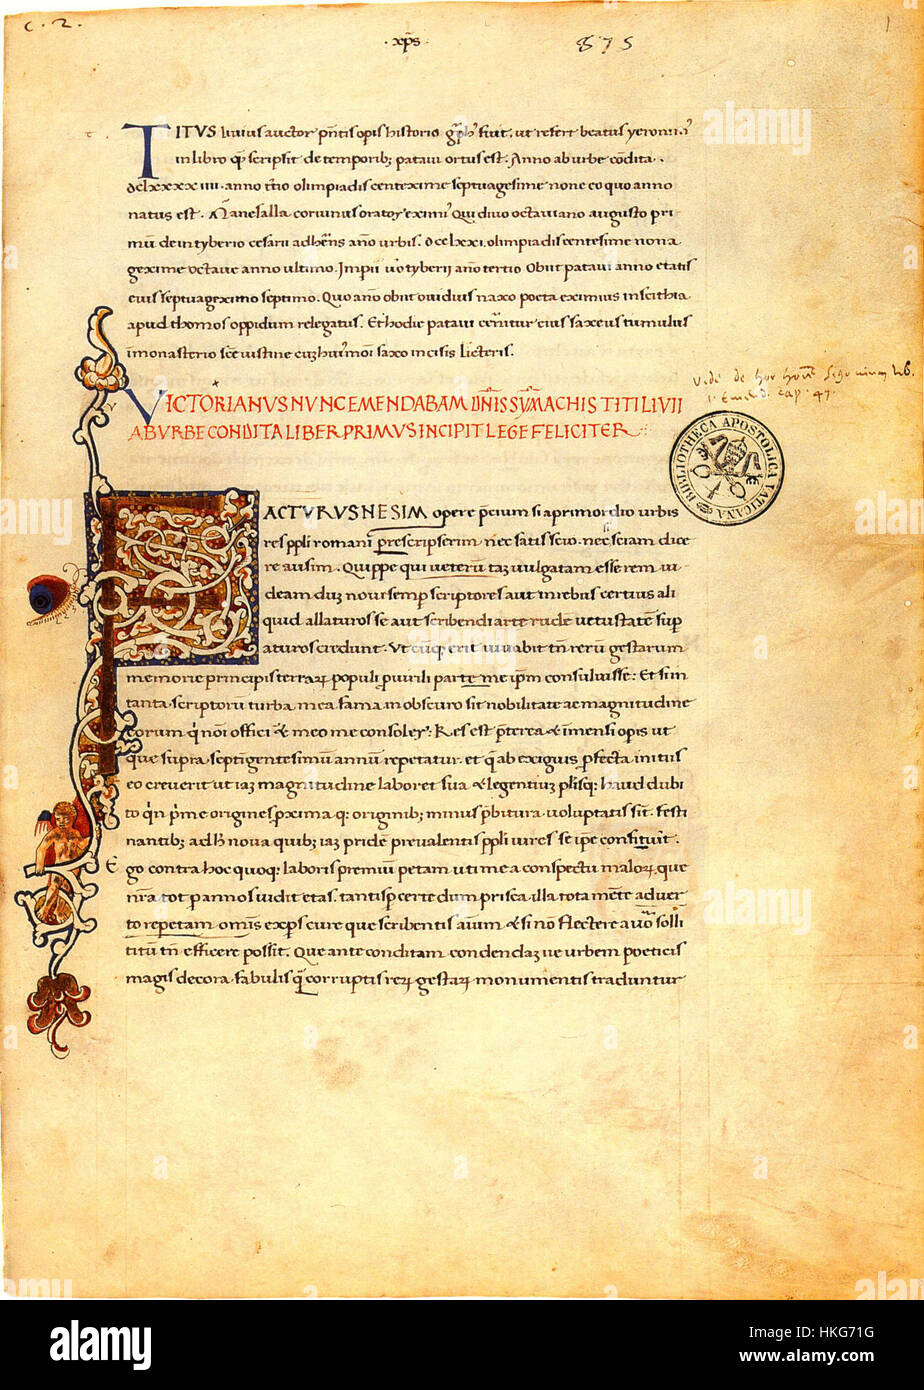 c. 2.
·xp̄s·
875
1
TITVS livius auctor pñtis opis historio gͣphꝰ fuit. ut refert beatus yeronimꝰ
in libro qͫ scripsit de temporibꝫ patavi ortus est. Anno ab urbe cōdita.
dclxxxxiiii. anno t̄tio olimpiadis centexime septuagesime none eo quo anno
natus est. Mesalla corvinus orator eximiꝰ Qui divo octaviano augusto pri
mū deinꝫ tyberio cesari adhēns año urbis. dcclxxi. olimpiadis centesime nona
gexime octave anno ultimo. Impii ūo tyberii año tertio Obiit patavi anno etatis
eius septuagexīmo septimo. Quo año obiit ovidius naxo poeta eximius in scithia
apud thomos oppidum relegatus. Et hodie patavi cernitur eius saxeus tumulus
ī monasterio sc̄e iustine cuiꝰ huiꝰmōi saxo incisis licteris.
VICTORIANVS NVNC EMENDABAM DÑIS SYM̄ACHIS TITI LIVII
AB VRBE CONDITA LIBER PRIMVS INCIPIT LEGE FELICITER
Vide de hoc
cap. 47.
BIBLIOTHECA APOSTOLICA VATICANA
FACTVRVSNE SIM opere p̄cium si a primordio urbis
res ppl̄i romani perscripserim nec satis scio. nec si sciam dice
re ausim. Quippe qui veterū taꝫ vulgatam esse rem vi
deam duꝫ novi semp̱ scriptores aut in rebus certius ali
quid allaturos se aut scribendi arte rudē vetustatē sup̱
aturos credunt. Vt cūqꝫ erit iuvabit tñ rerū gestarum
memorie principis terraꝝ populi p̱ virili parte me ip̄m consuluisse: Et si in
tanta scriptorū turba mea fama in obscuro sit nobilitate ac magnitudine
eorum qͥ nōi officiēt meo me consoler: Res est p̄terea & imensi opis ut
que supra septigentesimum annū repetatur et qͣ ab exiguis p̱fecta initiis
eo creverit ut iaꝫ magnitudine laboret sua & legentiuꝫ pl̄isqꝫ haud dubi
to qͥn p̄me origines p̱xima qꝫ originibꝫ minus p̄bitura voluptatis sīt. festi
nantibꝫ ad hͦ nova quibꝫ iaꝫ pridē prevalentis ppl̄i vires se ip̄e conficiūt.
Ego contra hoc quoqꝫ laboris premiū petam uti me a conspectu maloꝝ que
nr̄a tot p̱ annos vidit etas. tantisp̱ certe dum prisca illa tota mēte adver
to repetam. omīs exp̱s cure que scribentis aīum & si nō flectere a vͦ solli
titū tñ efficere possit. Que ante conditam condendaꝫ ve urbem poeticis
magis decora fabulis qͫ corruptis reꝝ gestaꝝ monumentis traduntur
alamy
Image ID: HKG71G
www.alamy.com